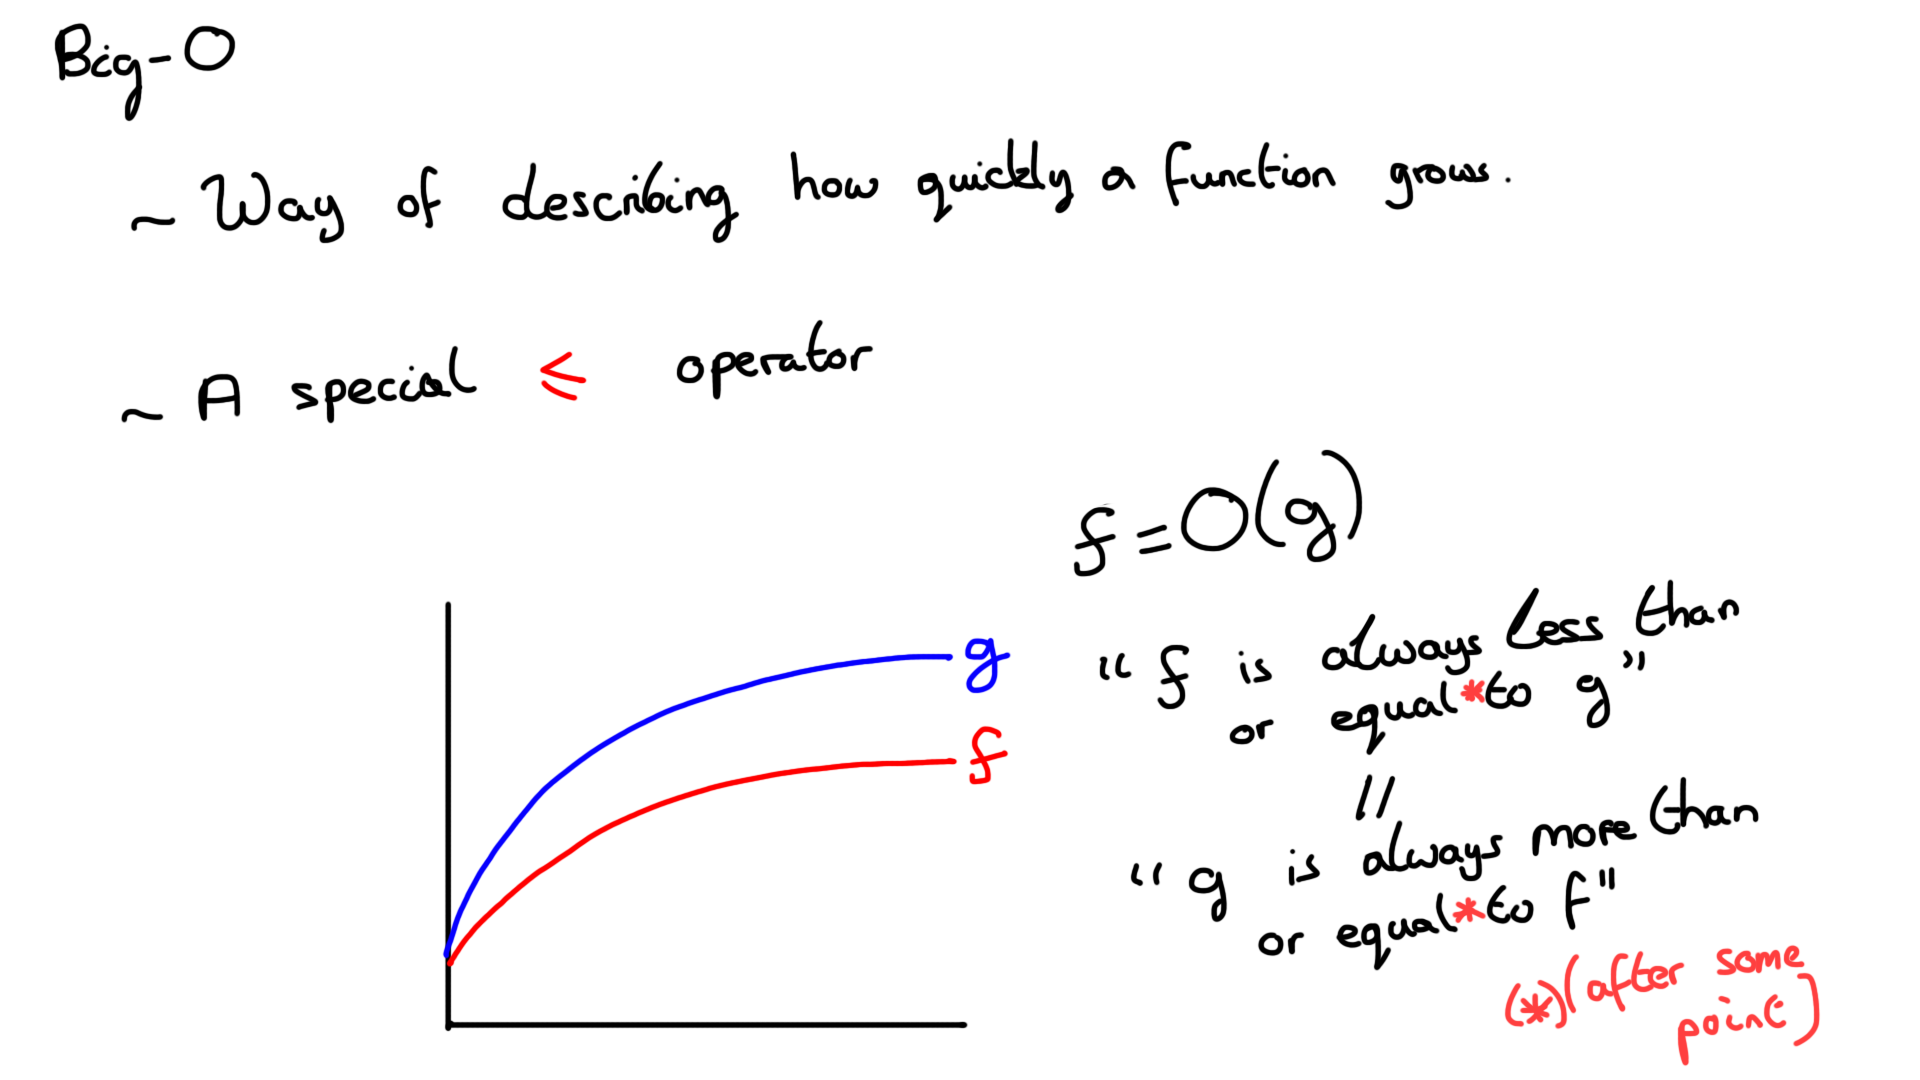 Big-O
~ Way of describing how quickly a function grows.
~ A special ≤ operator
f = O(g)
g
f
“ f is always less than
or equal*to g”
//
“ g is always more than
or equal*to f"
(*)(after some
point)